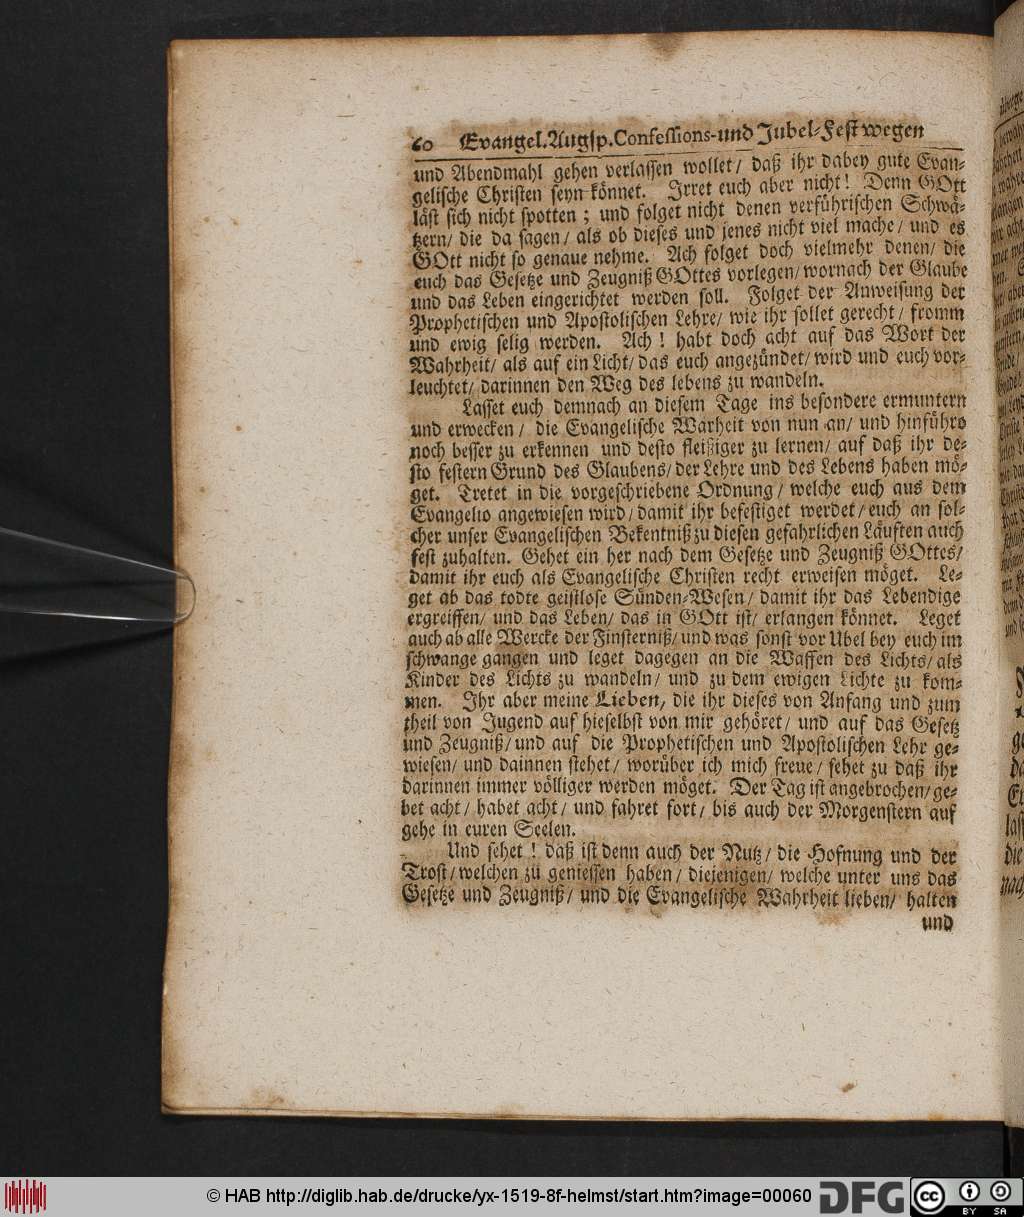 60 Evangel. Augsp. Confessions- und Jubel-Fest wegen
und Abendmahl gehen verlassen wollet/ daß ihr dabey gute Evan-
gelische Christen seyn könnet. Irret euch aber nicht! Denn GOtt
läst sich nicht spotten; und folget nicht denen verführischen Schwä-
tzern/ die da sagen/ als ob dieses und jenes nicht viel mache/ und es
GOtt nicht so genaue nehme. Ach folget doch vielmehr denen/ die
euch das Gesetze und Zeugniß GOttes vorlegen/ wornach der Glaube
und das Leben eingerichtet werden soll. Folget der Anweisung der
Prophetischen und Apostolischen Lehre/ wie ihr sollet gerecht/ fromm
und ewig selig werden. Ach! habt doch acht auf das Wort der
Wahrheit/ als auf ein Licht/ das euch angezündet/ wird und euch vor-
leuchtet/ darinnen den Weg des lebens zu wandeln.
Lasset euch demnach an diesem Tage ins besondere ermuntern
und erwecken/ die Evangelische Warheit von nun an/ und hinführo
noch besser zu erkennen und desto fleißiger zu lernen/ auf daß ihr de-
sto festern Grund des Glaubens/ der Lehre und des Lebens haben mö-
get. Tretet in die vorgeschriebene Ordnung/ welche euch aus dem
Evangelio angewiesen wird/ damit ihr befestiget werdet/ euch an sol-
cher unser Evangelischen Bekentniß zu diesen gefahrlichen Läufften auch
fest zuhalten. Gehet ein her nach dem Gesetze und Zeugniß GOttes/
damit ihr euch als Evangelische Christen recht erweisen möget. Le-
get ab das todte geistlose Sünden-Wesen/ damit ihr das Lebendige
ergreiffen/ und das Leben/ das in GOtt ist/ erlangen könnet. Leget
auch ab alle Wercke der Finsterniß/ und was sonst vor Ubel bey euch im
schwange gangen und leget dagegen an die Waffen des Lichts/ als
Kinder des Lichts zu wandeln/ und zu dem ewigen Lichte zu kom-
men. Ihr aber meine Lieben, die ihr dieses von Anfang und zum
theil von Jugend auf hieselbst von mir gehöret/ und auf das Gesetz
und Zeugniß/ und auf die Prophetischen und Apostolischen Lehr ge-
wiesen/ und dainnen stehet/ worüber ich mich freue/ sehet zu daß ihr
darinnen immer völliger werden möget. Der Tag ist angebrochen/ ge-
bet acht/ habet acht/ und fahret fort/ bis auch der Morgenstern auf
gehe in euren Seelen.
Und sehet! daß ist denn auch der Nutz/ die Hofnung und der
Trost/ welchen zu geniessen haben/ diejenigen/ welche unter uns das
Gesetze und Zeugniß/ und die Evangelische Wahrheit lieben/ halten
und
© HAB http://diglib.hab.de/drucke/yx-1519-8f-helmst/start.htm?image=00060
DFG
cc BY SA